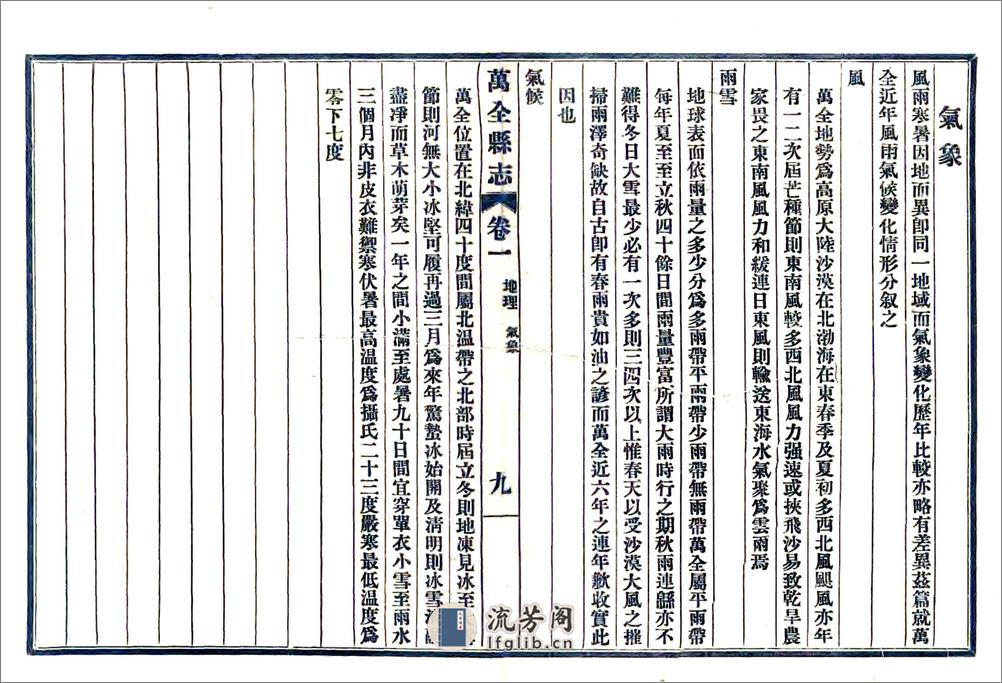 氣象
風雨寒暑因地而異卽同一地域而氣象變化歷年比較亦略有差異茲篇就萬
全近年風雨氣候變化情形分叙之
風
萬全地勢爲高原大陸沙漠在北渤海在東春季及夏初多西北風颶風亦年
有一二次屆芒種節則東南風較多西北風風力强速或挾飛沙易致乾旱農
家畏之東南風風力和緩連日東風則輸送東海水氣聚爲雲雨焉
雨雪
地球表面依雨量之多少分爲多雨帶平雨帶少雨帶無雨帶萬全屬平雨帶
每年夏至至立秋四十餘日間雨量豐富所謂大雨時行之期秋雨連緜亦不
難得冬日大雪最少必有一次多則三四次以上惟春天以受沙漠大風之摧
掃雨澤奇缺故自古卽有春雨貴如油之諺而萬全近六年之連年歉收實此
因也
氣候
萬全縣志
卷一
地理
氣象
九
萬全位置在北緯四十度間屬北溫帶之北部時屆立冬則地凍見冰至
節則河無大小冰堅可履再過三月爲來年驚蟄冰始開及淸明則冰雪
盡凈而草木萌芽矣一年之間小滿至處暑九十日間宜穿單衣小雪至雨水
三個月內非皮衣難禦寒伏暑最高溫度爲攝氏二十三度嚴寒最低溫度爲
零下七度
流芳阁
lfglib.cn